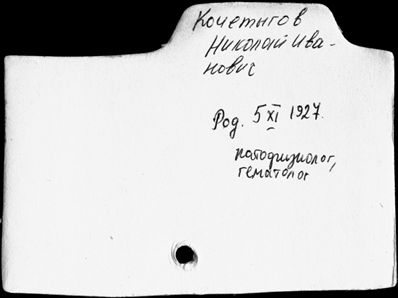 Кочетыгов
Николай Ива-
нович
Род. 5 XI 1927.
патофизиолог,
гематолог